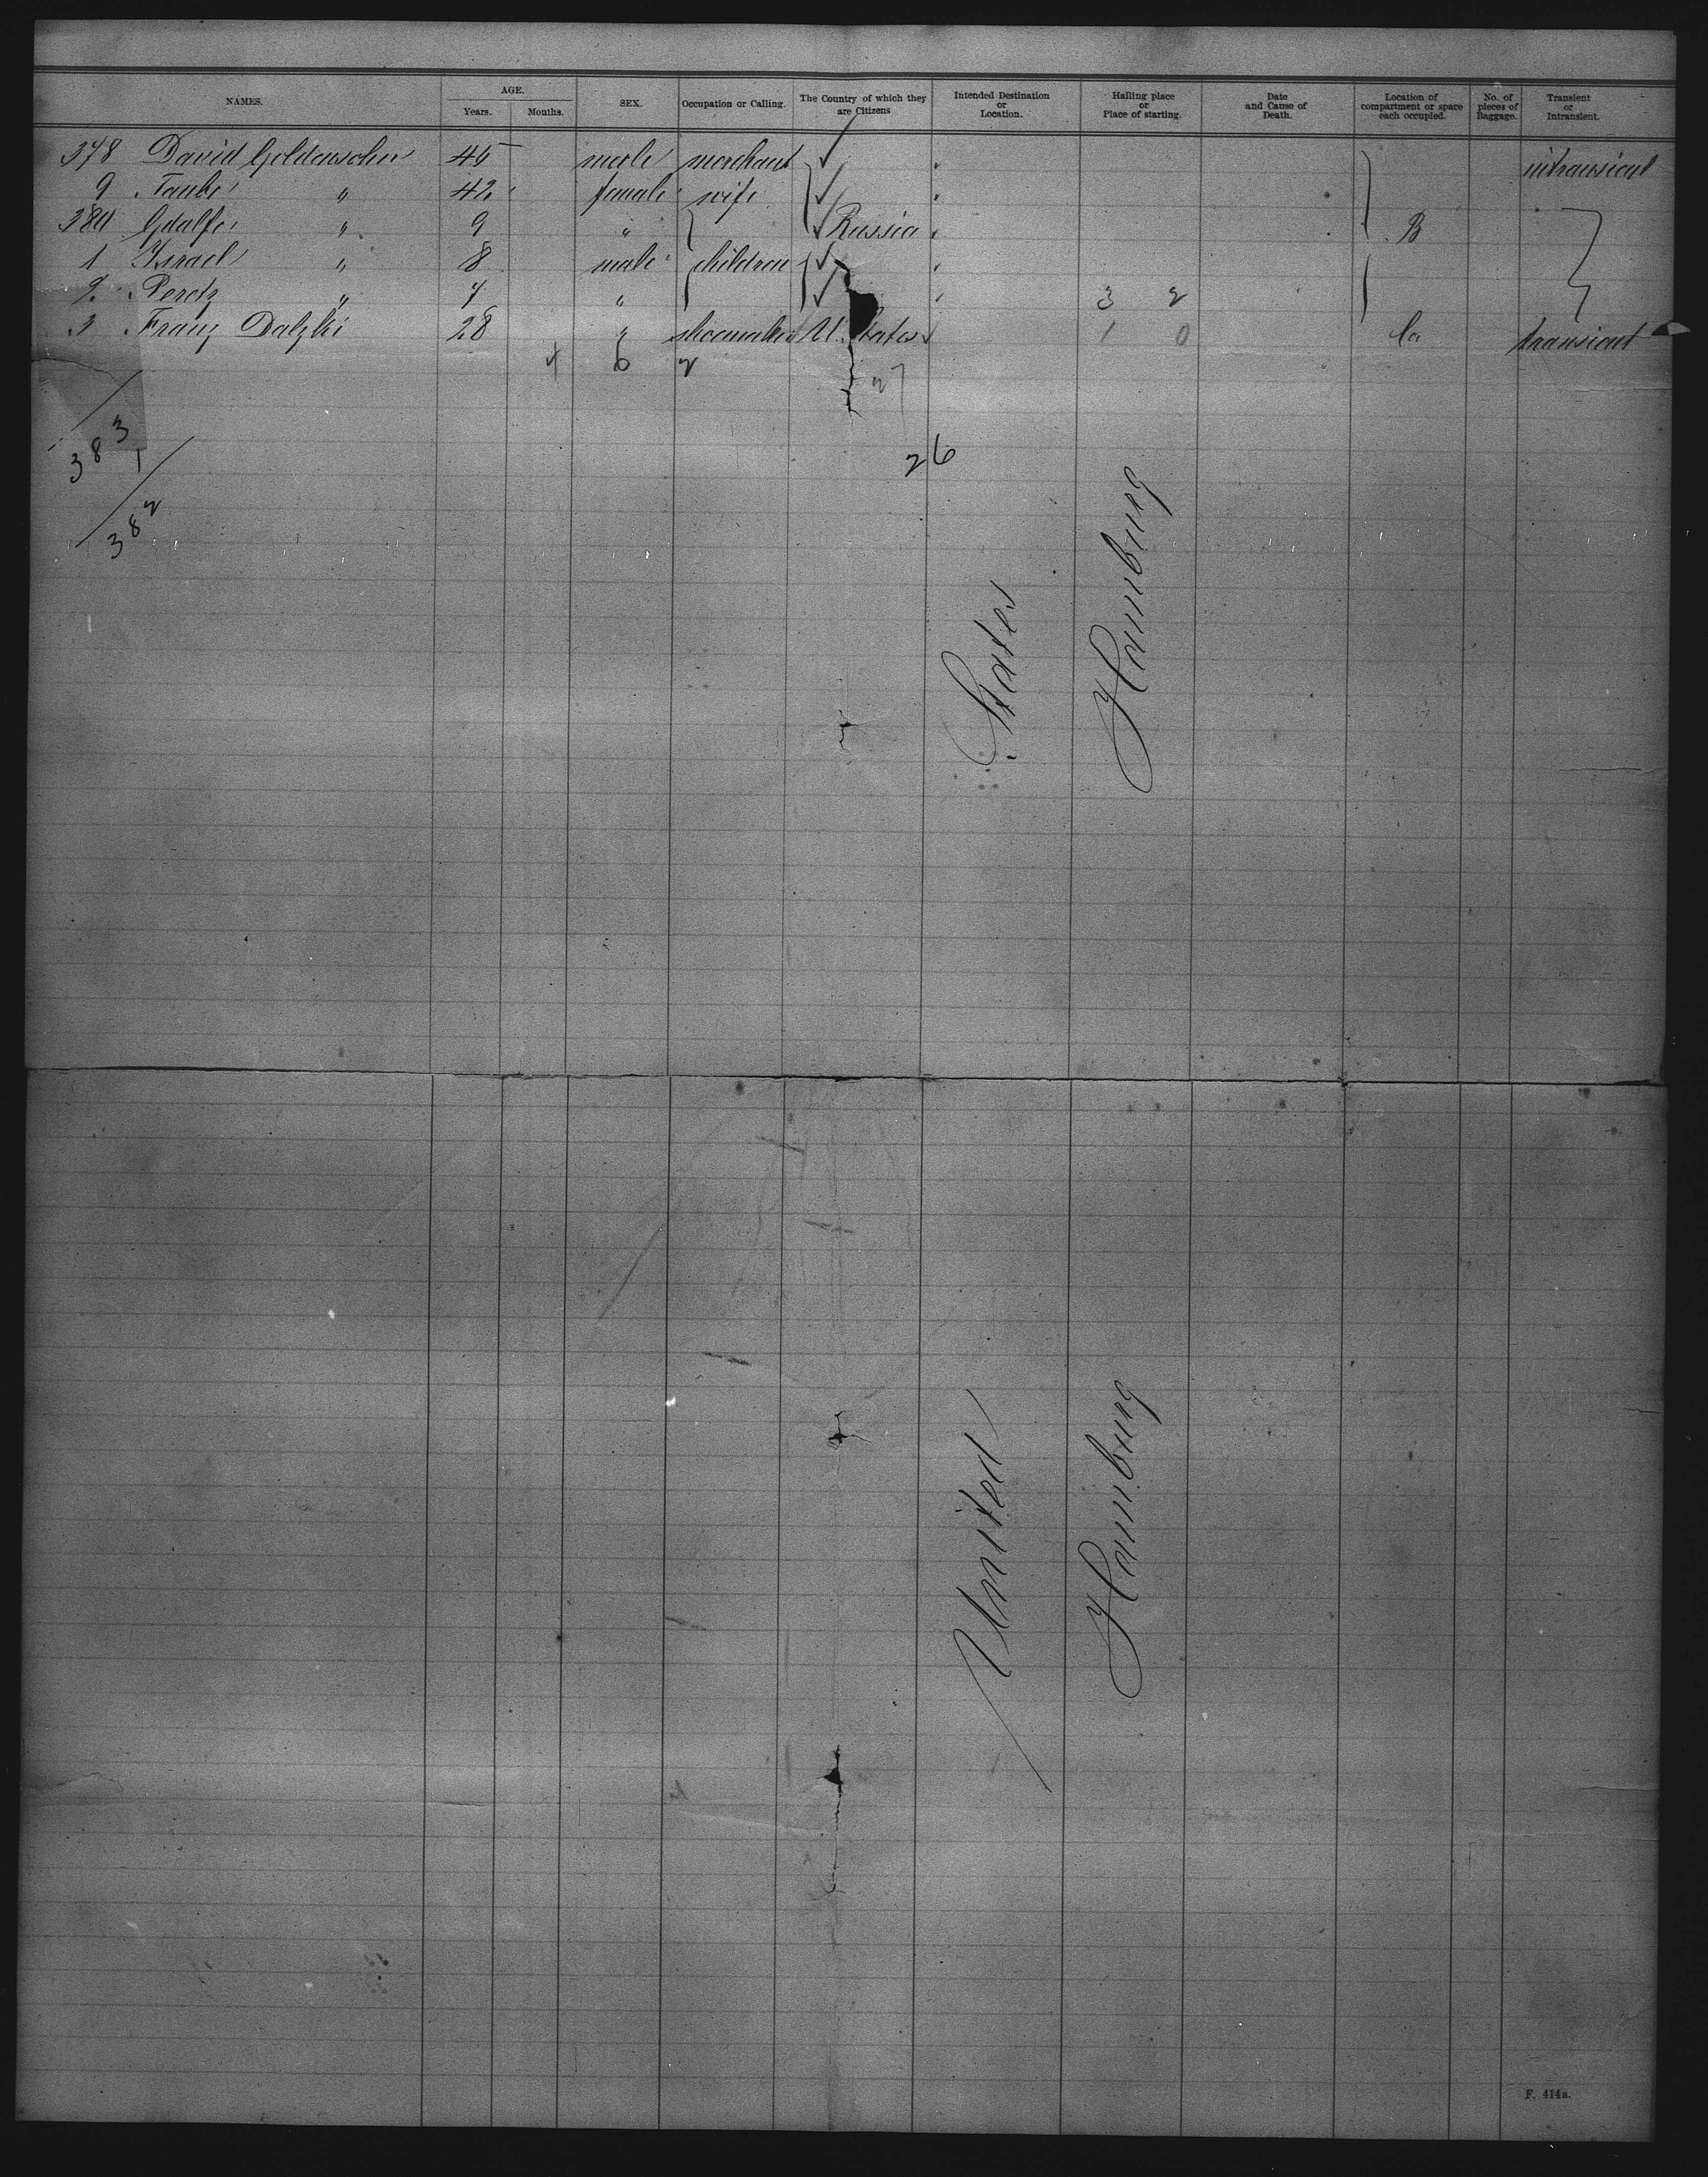 NAMES. AGE. Years. Months. SEX. Occupation or Calling. The Country of which they are Citizens Intended Destination or Location. Hailing place or Place of starting. Date and Cause of Death. Location of compartment or space each occupied. No. of pieces of Baggage. Transient or Intransient.
378 David Goldensohn 45 male merchant intransient
9 Taube " 42 female wife
380 " 9 " Russia B
1 Israel " 8 male children
2 Peretz " 7 " 3 2
3 Franz Dalzki 28 " shoemaker U. States 1 0 transient
4 6 2
27
383
1
382
26
States Hamburg
United Hamburg
F. 414a.